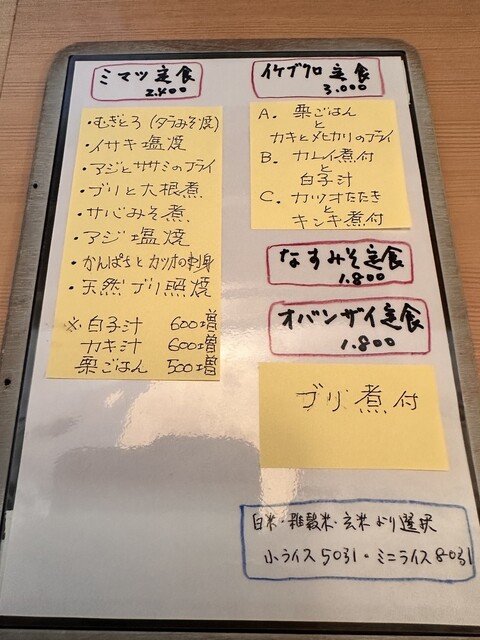 ミマツ定食
2.400
・むぎとろ(タラみそ焼)
・イサキ塩焼
・アジとササミのフライ
・ブリと大根煮
・サバみそ煮
・アジ塩焼
・かんぱちとカツオの刺身
・天然ブリ照焼
※白子汁 600増
カキ汁 600増
栗ごはん 500増
イケブクロ定食
3.000
A. 栗ごはん
と
カキとメヒカリのフライ
B. カレイ煮付
と
白子汁
C. カツオたたき
と
キンキ煮付
なすみそ定食
1.800
オバンザイ定食
1.800
ブリ煮付
白米・雑穀米・玄米より選択
小ライス50引・ミニライス80引